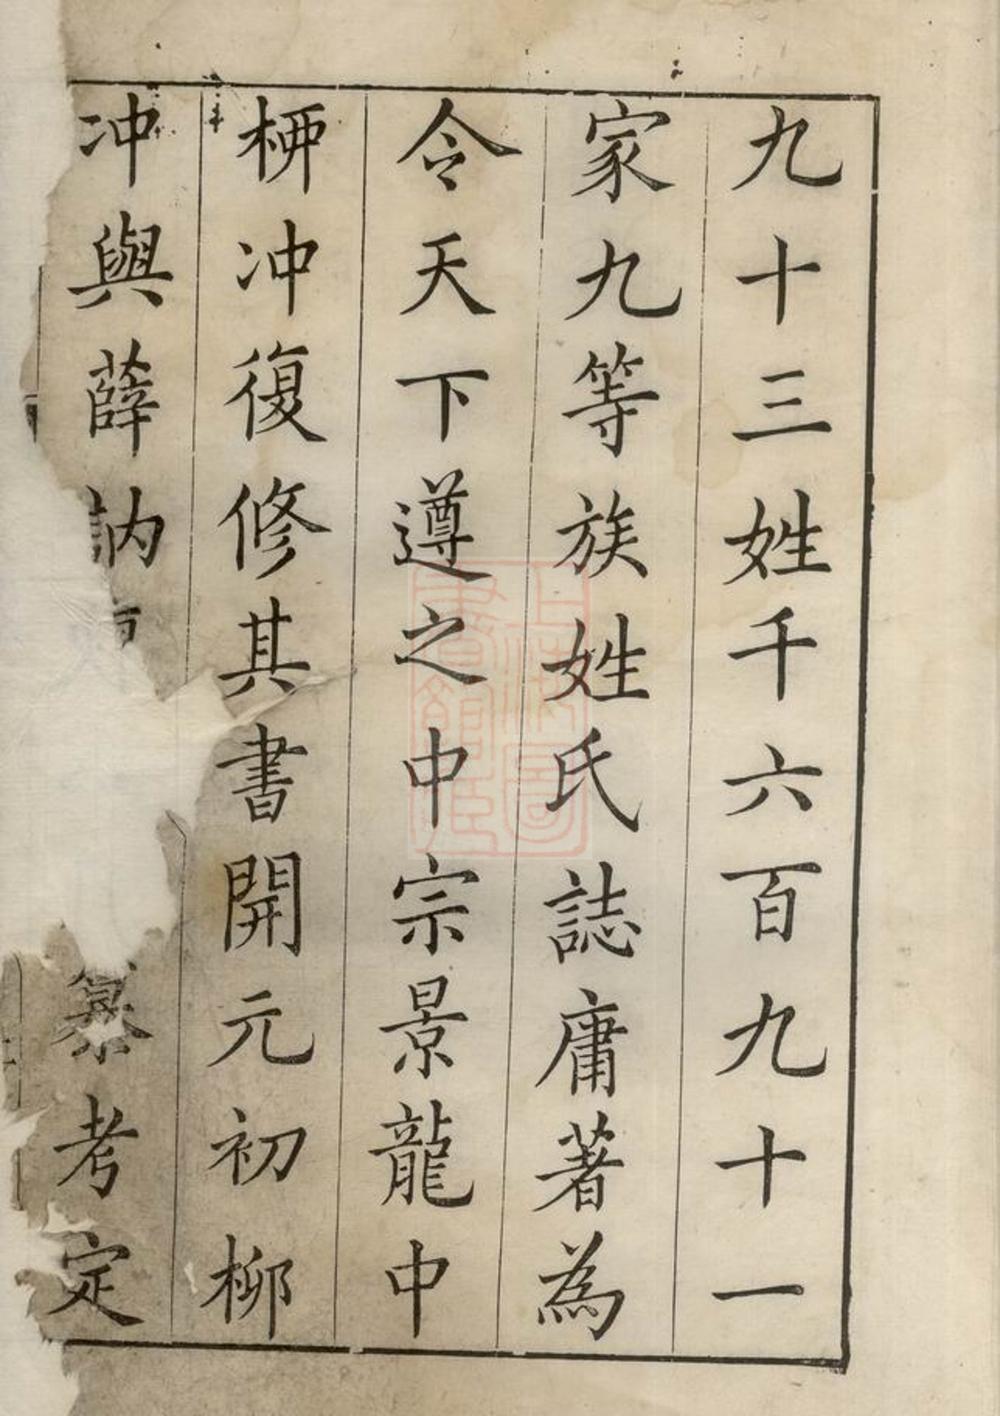 九十三姓千六百九十一
家九等族姓氏誌庸著為
令天下遵之中宗景龍中
柳冲復修其書開元初柳
冲與薛訥纂考定